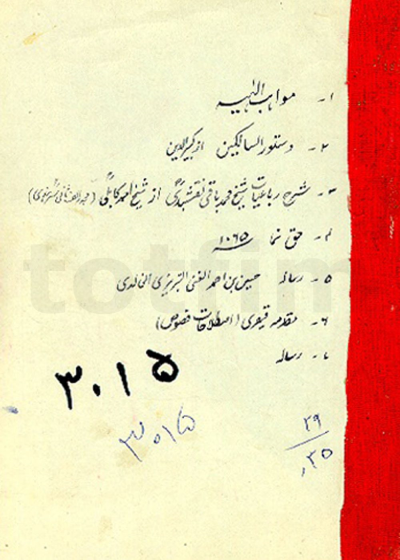 ۱ - مواہب الٰہیہ
۲ - دستور السالکین از کبیر الدین
۳ - شرح رباعیات شیخ محمد باقی نقشبندی از شیخ احمد کابلی (مجدد الف ثانی سرہندی)
۴ - حق نما ۱۰۶۵
۵ - رسالہ حسین بن احمد الغنی التبریزی الخالدی
۶ - مقدمہ قیصری (اصطلاحات فصوص)
۷ - رسالہ
۳۰۱۵
۳۰۱۵
۲۹
۳۵